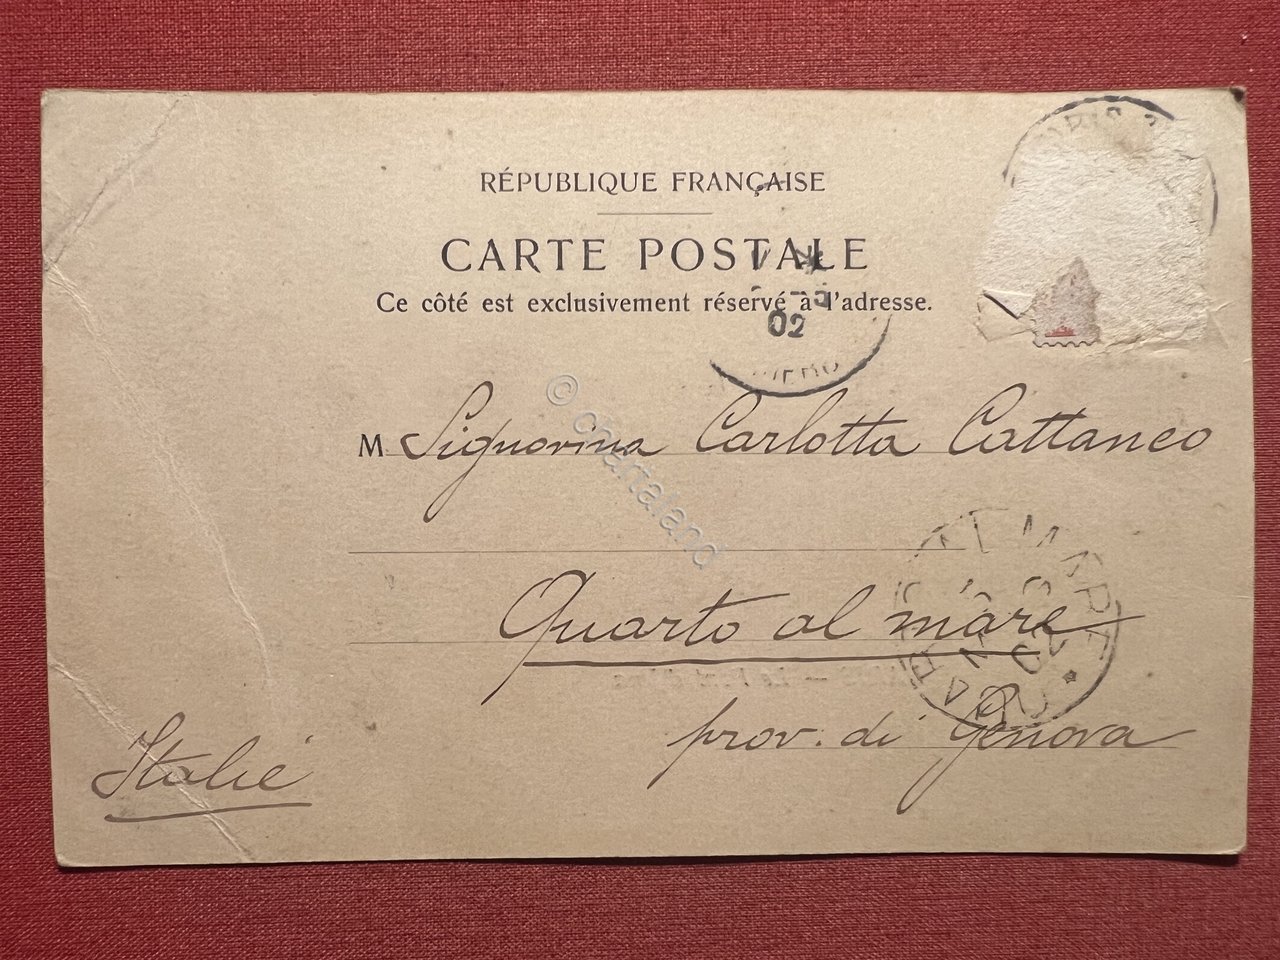 RÉPUBLIQUE FRANÇAISE
CARTE POSTALE
Ce côté est exclusivement réservé à l'adresse.
02
M Signorina Carlotta Cattaneo
Quarto al mare
prov. di Genova
Italie
© chartaland